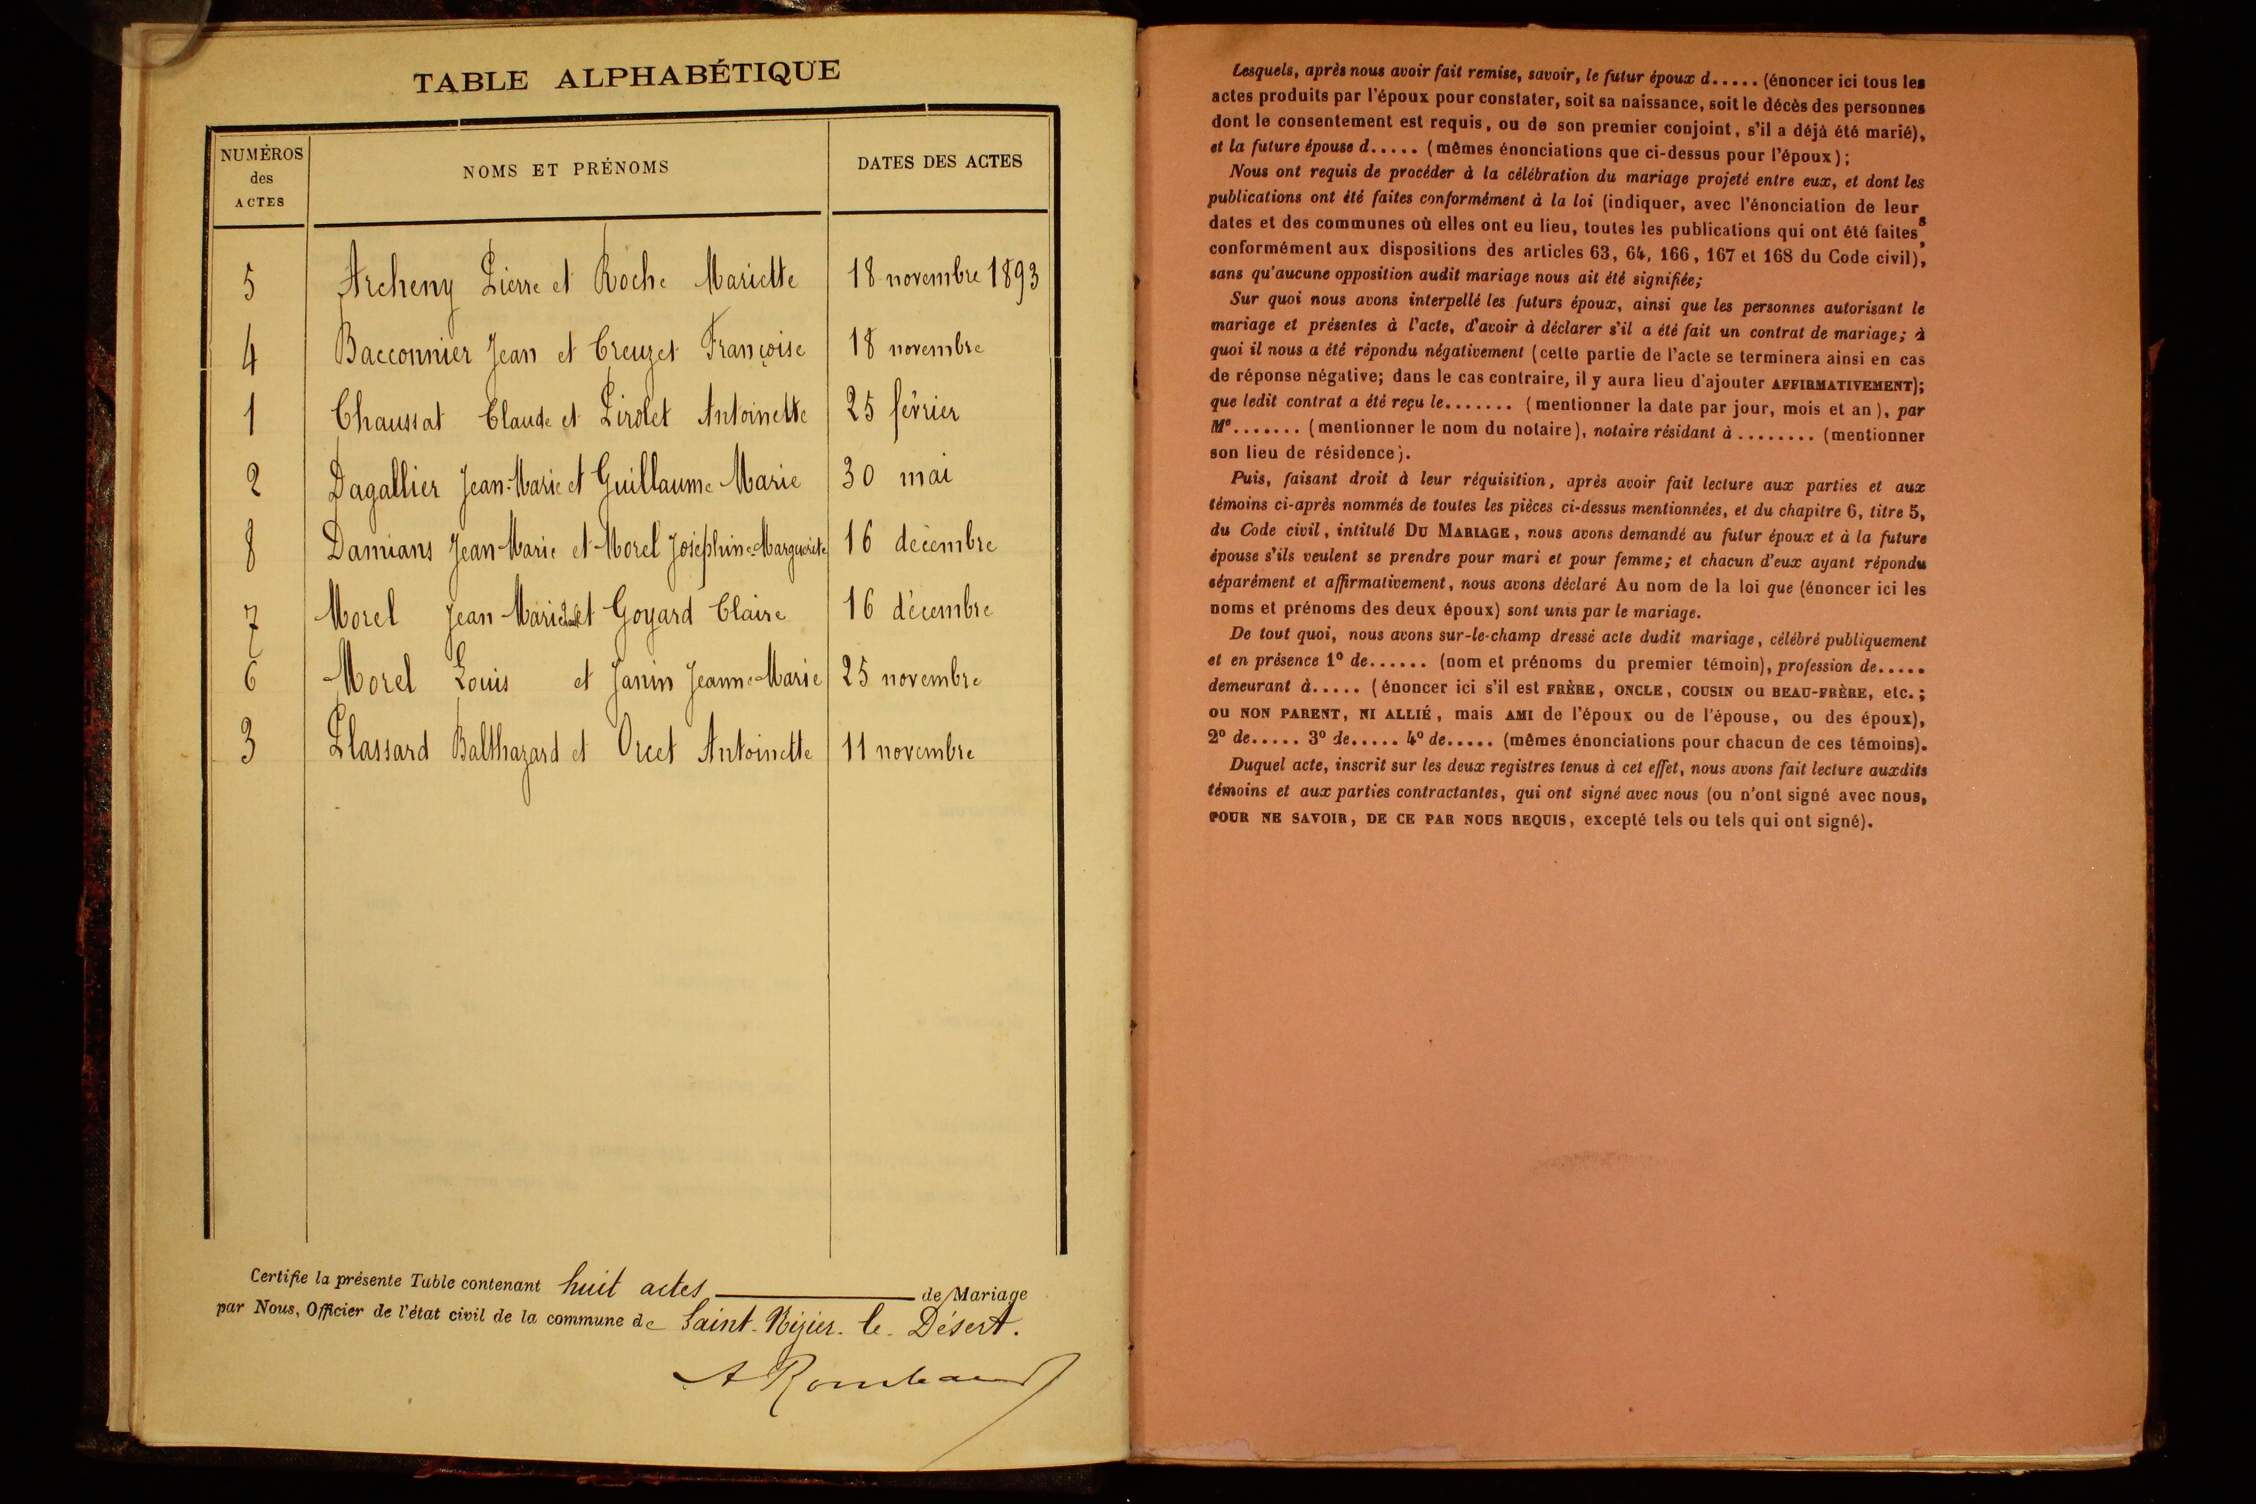 TABLE ALPHABÉTIQUE
NUMÉROS
des
ACTES
NOMS ET PRÉNOMS
DATES DES ACTES
5 Archeny Pierre et Roche Mariette 18 novembre 1893
4 Bacconnier Jean et Creuzet Françoise 18 novembre
1 Chaussat Claude et Pirolet Antoinette 25 février
2 Dagallier Jean-Marie et Guillaume Marie 30 mai
8 Damians Jean-Marie et Morel Joséphine-Marguerite 16 décembre
7 Morel Jean-Marie et Goyard Claire 16 décembre
6 Morel Louis et Janin Jeanne-Marie 25 novembre
3 Plassard Balthazard et Orcet Antoinette 11 novembre
Certifie la présente Table contenant huit actes de Mariage
par Nous, Officier de l'état civil de la commune de Saint-Nizier-le-Désert.
Lesquels, après nous avoir fait remise, savoir, le futur époux d..... (énoncer ici tous les
actes produits par l'époux pour constater, soit sa naissance, soit le décès des personnes
dont le consentement est requis, ou de son premier conjoint, s'il a déjà été marié),
et la future épouse d..... (mêmes énonciations que ci-dessus pour l'époux);
Nous ont requis de procéder à la célébration du mariage projeté entre eux, et dont les
publications ont été faites conformément à la loi (indiquer, avec l'énonciation de leurs
dates et des communes où elles ont eu lieu, toutes les publications qui ont été faites,
conformément aux dispositions des articles 63, 64, 166, 167 et 168 du Code civil),
sans qu'aucune opposition audit mariage nous ait été signifiée;
Sur quoi nous avons interpellé les futurs époux, ainsi que les personnes autorisant le
mariage et présentes à l'acte, d'avoir à déclarer s'il a été fait un contrat de mariage; à
quoi il nous a été répondu négativement (cette partie de l'acte se terminera ainsi en cas
de réponse négative; dans le cas contraire, il y aura lieu d'ajouter AFFIRMATIVEMENT);
que ledit contrat a été reçu le....... (mentionner la date par jour, mois et an), par
Me....... (mentionner le nom du notaire), notaire résidant à ........ (mentionner
son lieu de résidence).
Puis, faisant droit à leur réquisition, après avoir fait lecture aux parties et aux
témoins ci-après nommés de toutes les pièces ci-dessus mentionnées, et du chapitre 6, titre 5,
du Code civil, intitulé DU MARIAGE, nous avons demandé au futur époux et à la future
épouse s'ils veulent se prendre pour mari et pour femme; et chacun d'eux ayant répondu
séparément et affirmativement, nous avons déclaré Au nom de la loi que (énoncer ici les
noms et prénoms des deux époux) sont unis par le mariage.
De tout quoi, nous avons sur-le-champ dressé acte dudit mariage, célébré publiquement
et en présence 1º de...... (nom et prénoms du premier témoin), profession de.....
demeurant à..... (énoncer ici s'il est FRÈRE, ONCLE, COUSIN ou BEAU-FRÈRE, etc.;
ou NON PARENT, NI ALLIÉ, mais AMI de l'époux ou de l'épouse, ou des époux),
2º de..... 3º de..... 4º de..... (mêmes énonciations pour chacun de ces témoins).
Duquel acte, inscrit sur les deux registres tenus à cet effet, nous avons fait lecture auxdits
témoins et aux parties contractantes, qui ont signé avec nous (ou n'ont signé avec nous,
POUR NE SAVOIR, DE CE PAR NOUS REQUIS, excepté tels ou tels qui ont signé).